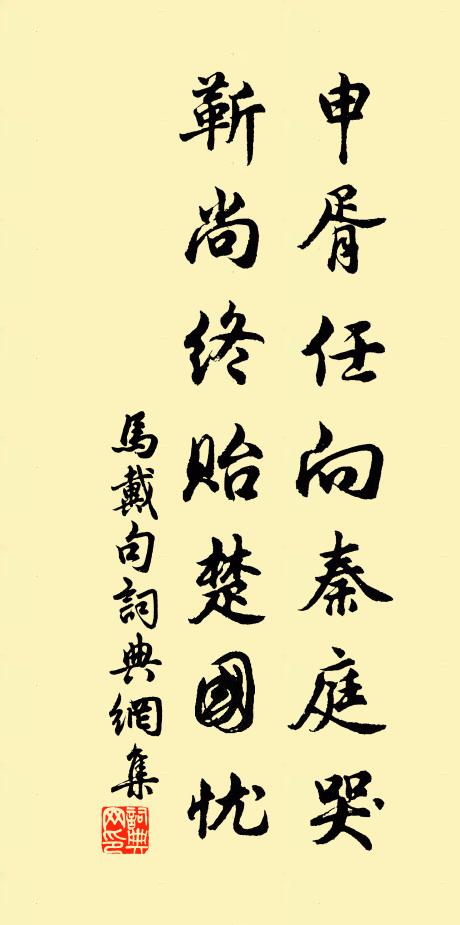 申胥任向秦庭哭
靳尚终贻楚國忧
馬戴句詞典網集
詞典網印